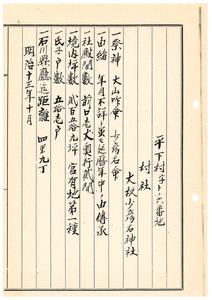 平下村子ト ノ 六番地
村社
大坂少彦名神社
一祭神 大山咋命 少彦名命
一由緒 年月不詳ト雖モ延暦年中ト申傳承
一社殿間数 前口壱丈奥行貳間
一境内坪数 貳百五拾九坪 官有地第一種
一氏子戸数 五拾壱戸
一石川縣廳迄距離 四里九丁
明治十三年十月